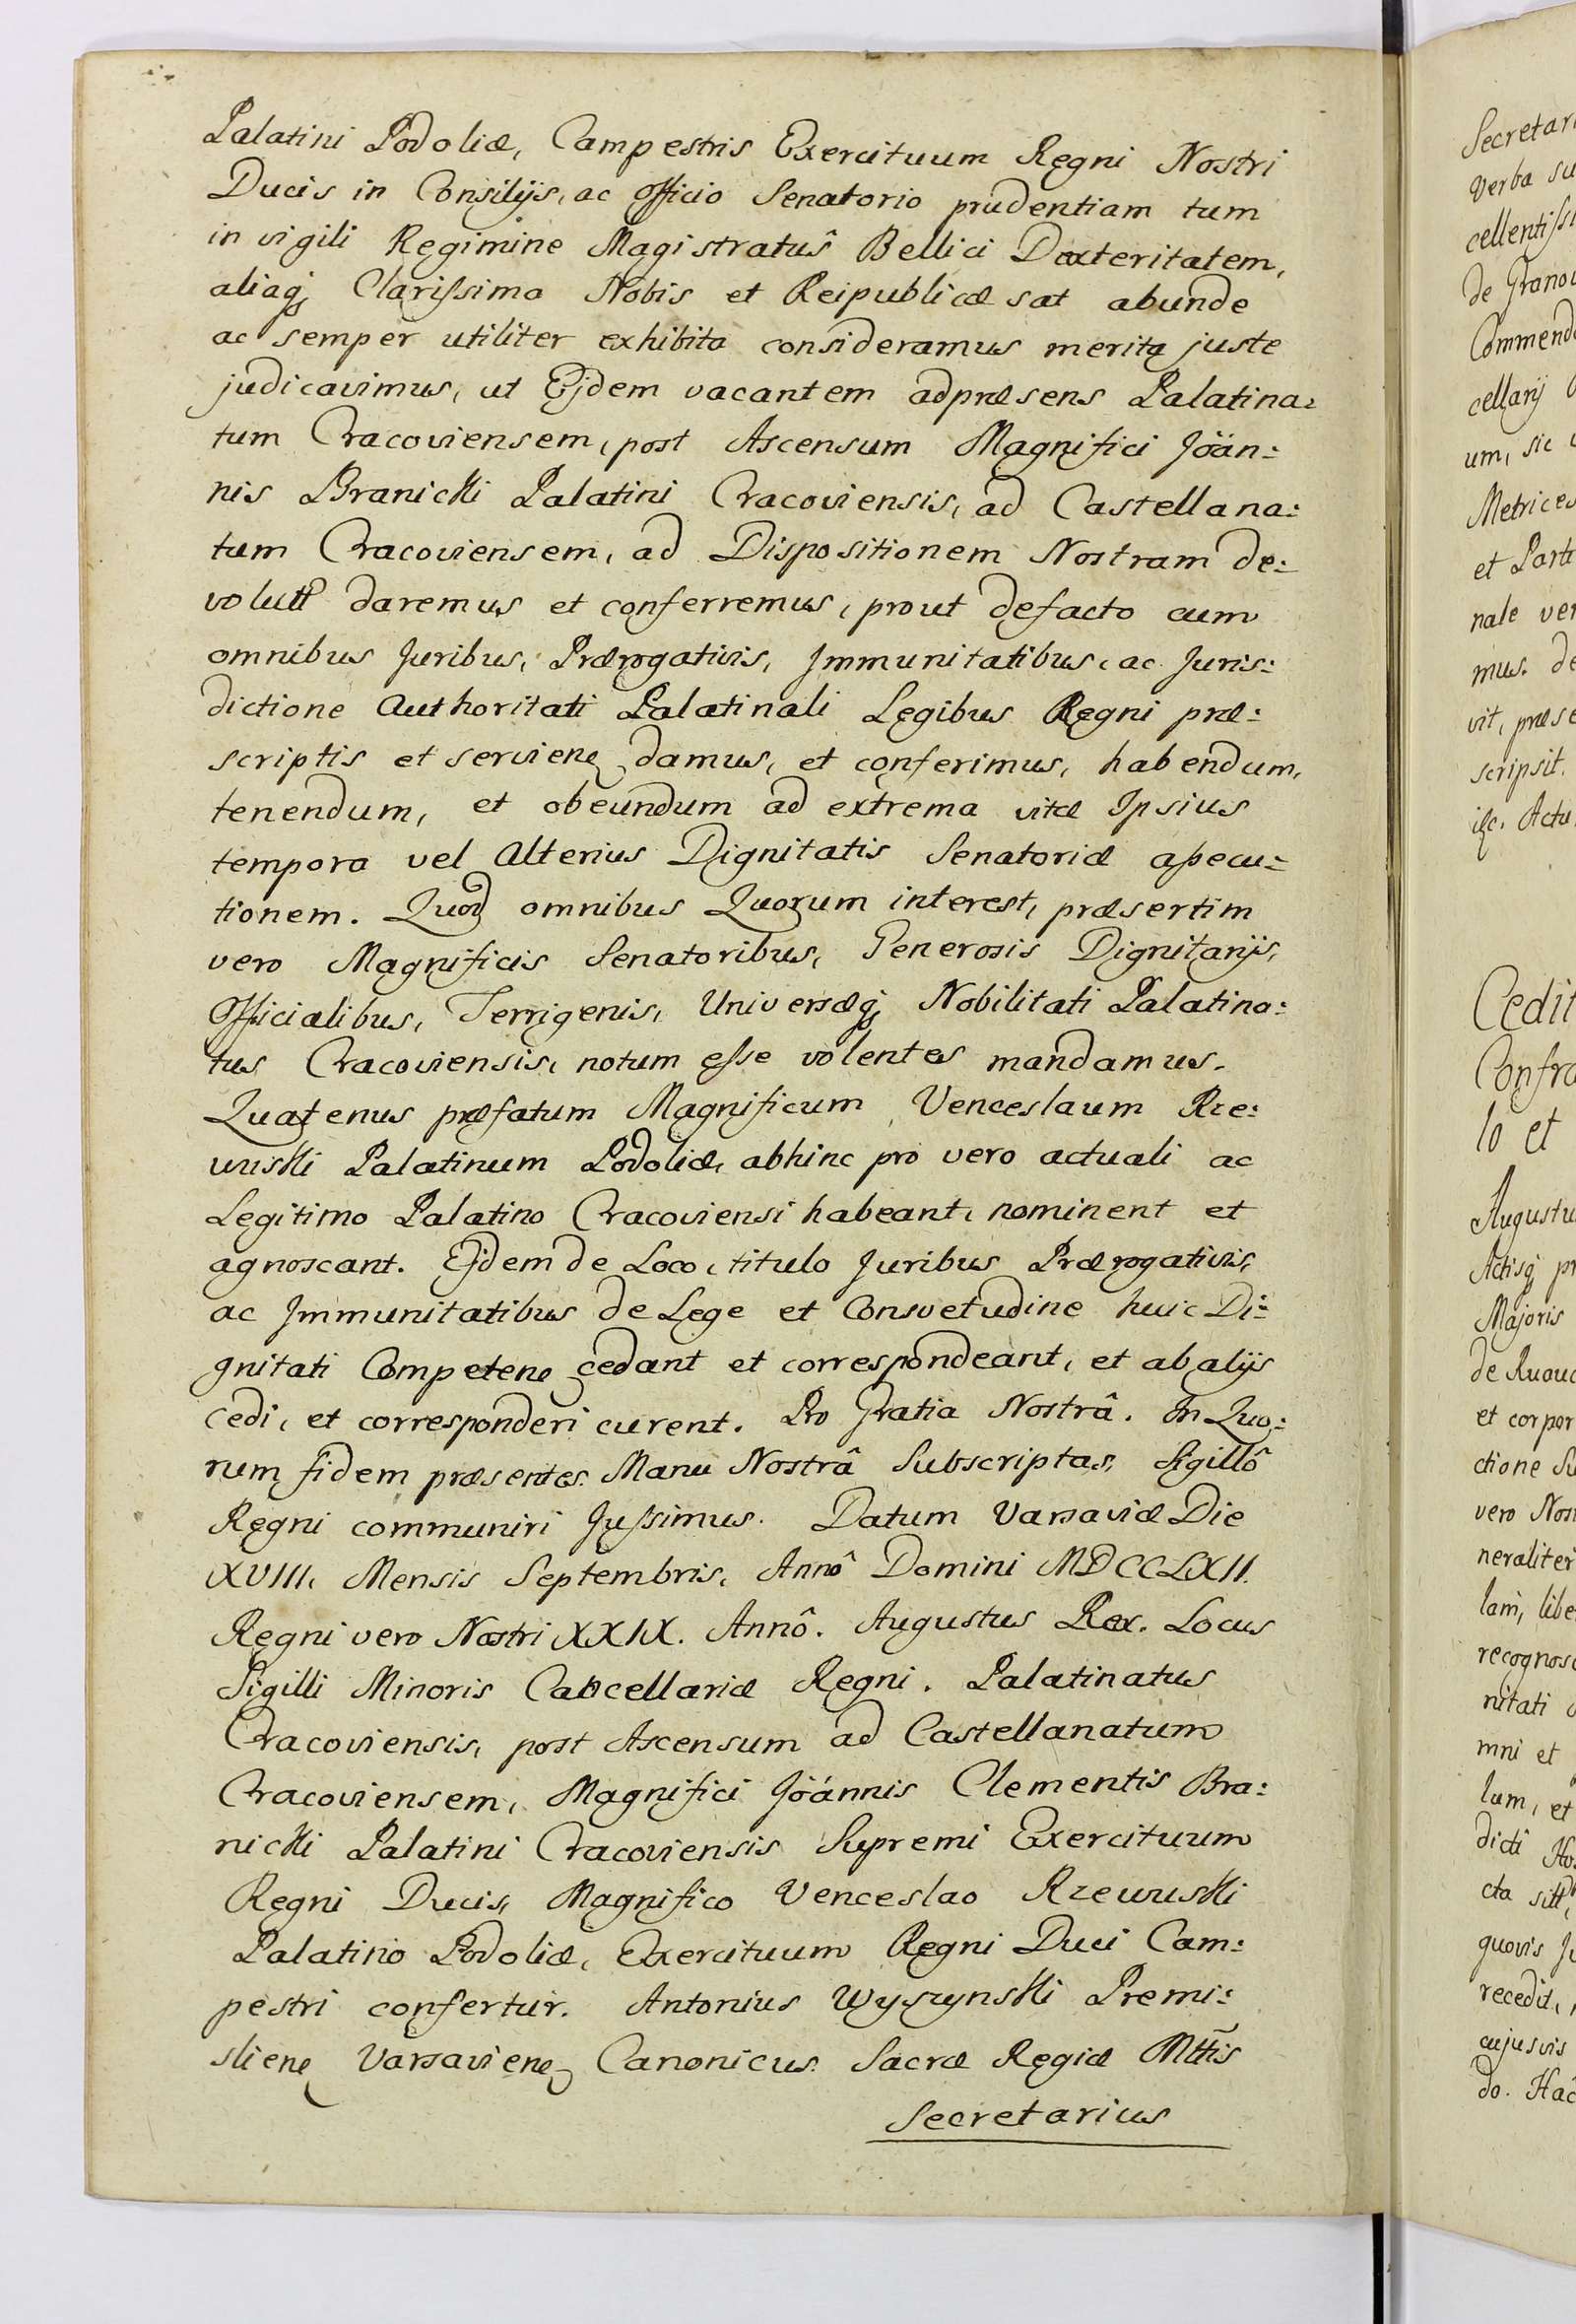 Palatini Podoliæ, Campestris Exercituum Regni Nostri
Ducis in Consilijs, ac Officio Senatorio prudentiam tum
in vigili Regimine Magistratûs Bellici Dexteritatem,
aliaq; Clarissima Nobis et Reipublicæ sat abunde
ac semper utiliter exhibita consideramus merita juste
judicavimus, ut Ejdem vacantem adpræsens Palatina:
tum Cracoviensem, post Ascensum Magnifici Joan:
nis Branicki Palatini Cracoviensis, ad Castellana:
tum Cracoviensem, ad Dispositionem Nostram de:
volutt daremus et conferremus, prout defacto cum
omnibus Juribus, Prærogativis, Immunitatibus, ac Juris:
dictione Authoritati Palatinali Legibus Regni præ:
scriptis et servien damus, et conferimus, habendum,
tenendum, et obeundum ad extrema vitæ Ipsius
tempora vel Alterius Dignitatis Senatoriæ assecu:
tionem. Quod omnibus Quorum interest, præsertim
vero Magnificis Senatoribus, Generosis Dignitarijs,
Officialibus, Terrigenis, Universæq; Nobilitati Palatina:
tus Cracoviensis, notum esse volentes mandamus.
Quatenus præfatum Magnificum Venceslaum Rze:
wuski Palatinum Podoliæ, abhinc pro vero actuali ac
Legitimo Palatino Cracoviensi habeant, nominent et
agnoscant. Ejdem de Loco, titulo Juribus Prærogativis,
ac Immunitatibus de Lege et Consvetudine huic Di:
gnitati Competen cedant et correspondeant, et ab alijs
cedi, et corresponderi curent. Pro Gratia Nostrâ. In Quo:
rum fidem præsentes. Manu Nostrâ Subscriptas, Sigillô
Regni communiri Jussimus. Datum Varsaviæ Die
XVIII. Mensis Septembris. Annô Domini MDCCLXII.
Regni vero Nostri XXIX. Annô. Augustus Rex. Locus
Sigilli Minoris Cancellariæ Regni. Palatinatus
Cracoviensis, post Ascensum ad Castellanatum
Cracoviensem, Magnifici Joánnis Clementis Bra:
nicki Palatini Cracoviensis Supremi Exercituum
Regni Ducis, Magnifico Venceslao Rzewuski
Palatino Podoliæ, Exercituum Regni Duci Cam:
pestri confertur. Antonius Wyszynski Premi:
slien Varsavien Canonicus. Sacræ Regiæ Mttis
Secretarius
verba su
de Granov
Commend
um, sic
Metrices
et Parti
nale ver
mus. de
vit, præse
scripsit.
Cedit
Confra
lo et
Augustu
Actisq pr
Majoris
et corpor
ctione Su
vero Nos
neraliter
lam, libe
recognosc
nitati
mni et
lum, et
cta sitt,
quovis Ju
recedit,
cujusvis
do. Hac